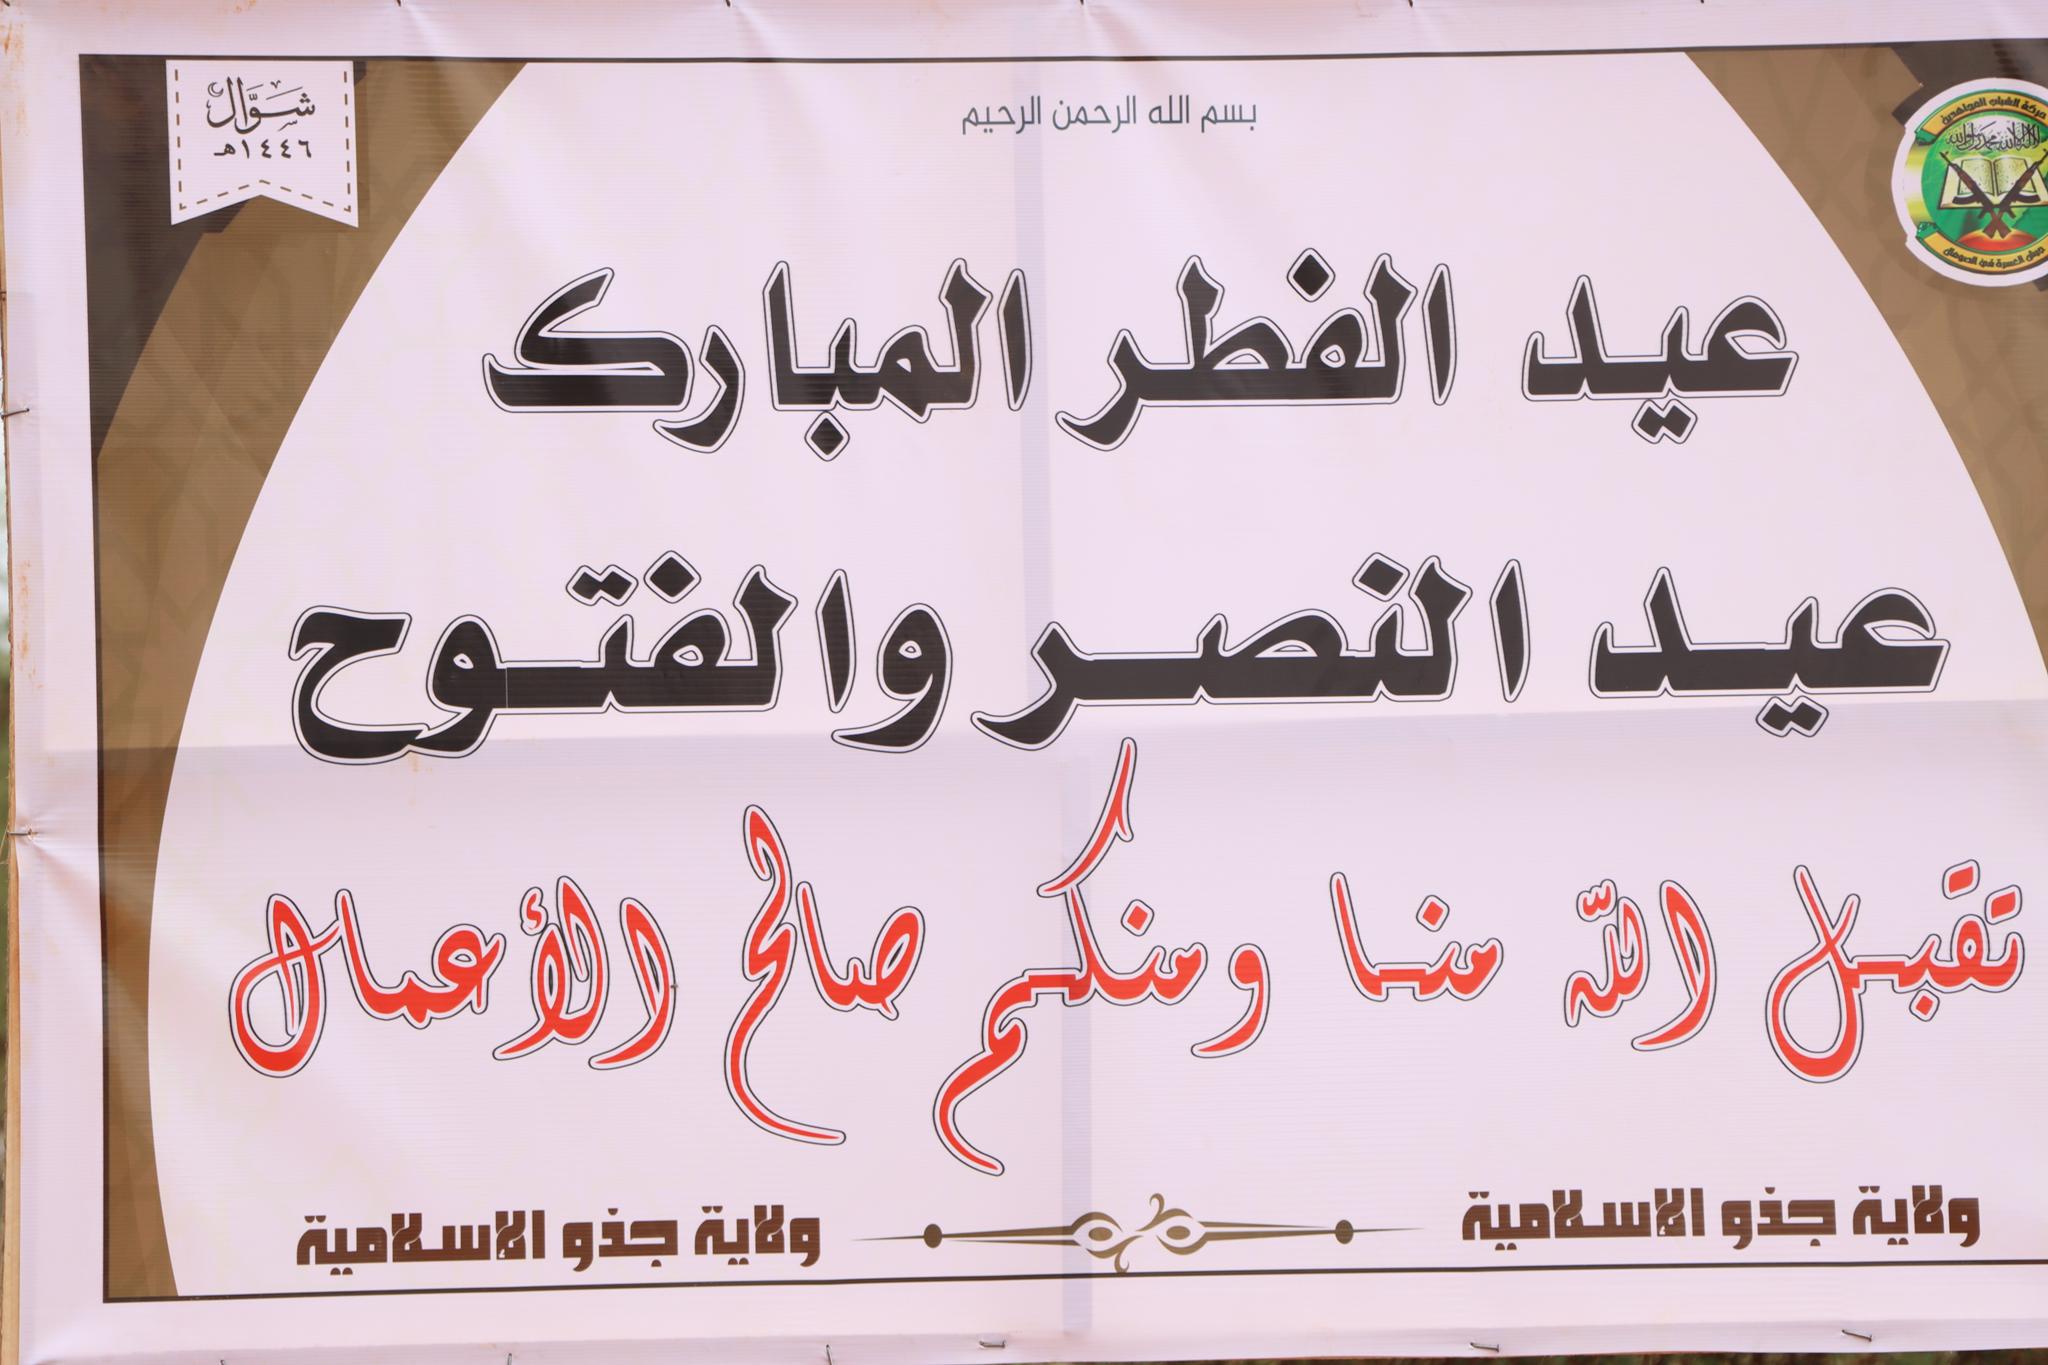 بسم الله الرحمن الرحيم
شوال
١٤٤٦هـ
حركة الشباب المجاهدين
لا إله إلا الله محمد رسول الله
جيش العسرة في الصومال
عيد الفطر المبارك
عيد النصر والفتوح
تقبل الله منا ومنكم صالح الأعمال
ولاية جذو الإسلامية
ولاية جذو الإسلامية